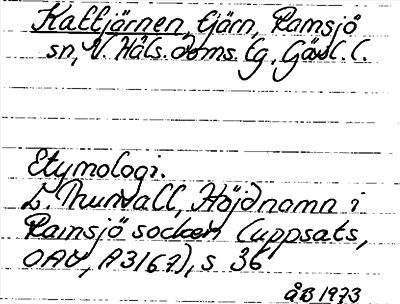 Kattjärnen, tjärn, Ramsjö
sn, V. Häls. doms. tg, Gävl. l.
Etymologi.
L. Thunvall, Höjdnamn i
Ramsjö socken (uppsats,
OAU, A3167), s 36
ÅB 1973